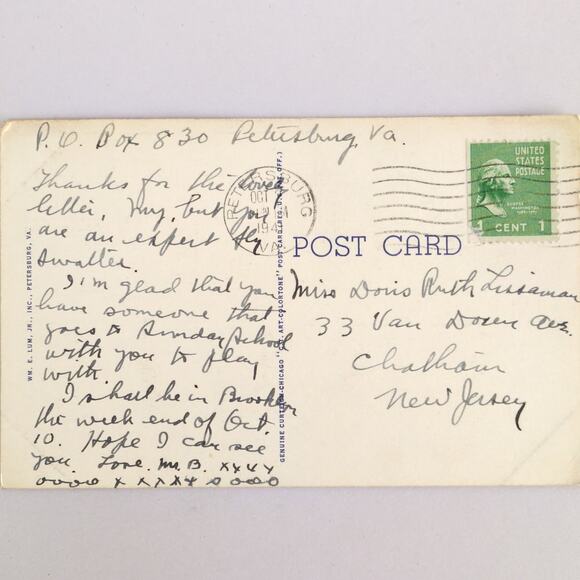 P.O. Box 830 Petersburg, Va.
Thanks for the loved
letter, My, but you
are an expert fly
swatter.
I'm glad that you
have someone that
goes to Sunday School
with you to play
with.
I shall be in Brooklyn
the week end of Oct.
10. Hope I can see
you. Love. Mr. B. xxxx
oooo x x x x x o ooo
PETERSBURG
OCT
194
VA.
UNITED
STATES
POSTAGE
GEORGE
WASHINGTON
1 CENT 1
POST CARD
Miss Doris Ruth Lissaman
33 Van Doren Ave.
Chatham
New Jersey
WM. E. LUM, JR., INC., PETERSBURG, VA.
GENUINE CURTEICH-CHICAGO "C.T. ART-COLORTONE" POST CARD (REG. U.S. PAT. OFF.)